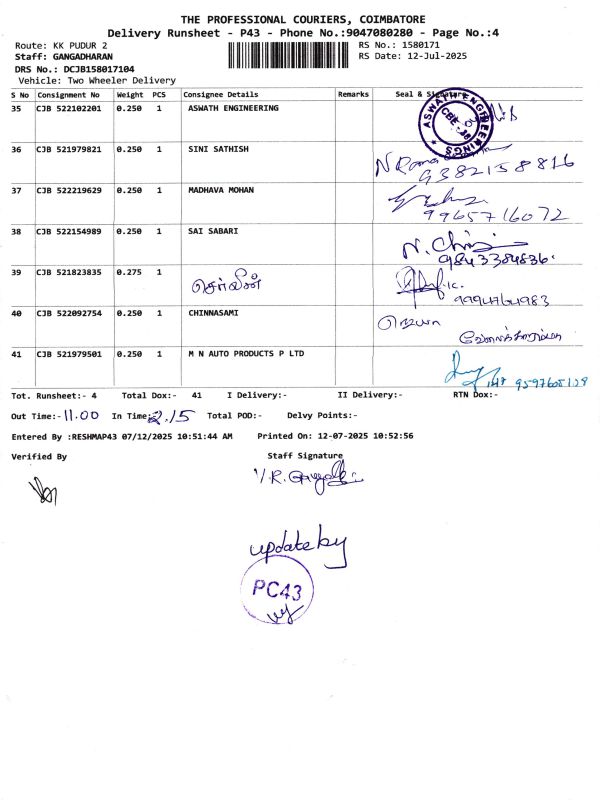 THE PROFESSIONAL COURIERS, COIMBATORE
Delivery Runsheet - P43 - Phone No.:9047080280 - Page No.:4
Route: KK PUDUR 2
RS No.: 1580171
Staff: GANGADHARAN
RS Date: 12-Jul-2025
DRS No.: DCJB158017104
Vehicle: Two Wheeler Delivery
S No Consignment No Weight PCS Consignee Details Remarks Seal & Signature
35 CJB 522102201 0.250 1 ASWATH ENGINEERING
ASWATH ENGINEERINGS
CBE
36 CJB 521979821 0.250 1 SINI SATHISH
9382158816
37 CJB 522219629 0.250 1 MADHAVA MOHAN
9965716072
38 CJB 522154989 0.250 1 SAI SABARI
9843384836.
39 CJB 521823835 0.275 1
9994764983
40 CJB 522092754 0.250 1 CHINNASAMI
41 CJB 521979501 0.250 1 M N AUTO PRODUCTS P LTD
Tot. Runsheet:- 4 Total Dox:- 41 I Delivery:- II Delivery:- RTN Dox:-
Out Time:- 11.00 In Time:- 2.15 Total POD:- Delvy Points:-
Entered By :RESHMAP43 07/12/2025 10:51:44 AM Printed On: 12-07-2025 10:52:56
Verified By Staff Signature
update by
PC43